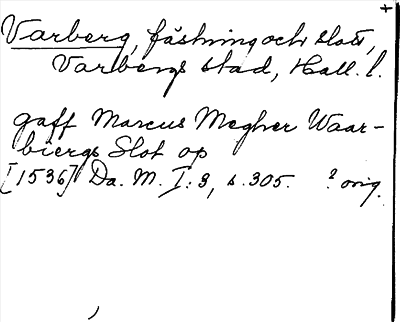 Varberg, fästning och slott,
Varbergs stad, Hall. l.
gaff Marcus Megher Waar-
biergs Slot op
[1536] Da. M. I: 3, s. 305. ? orig.